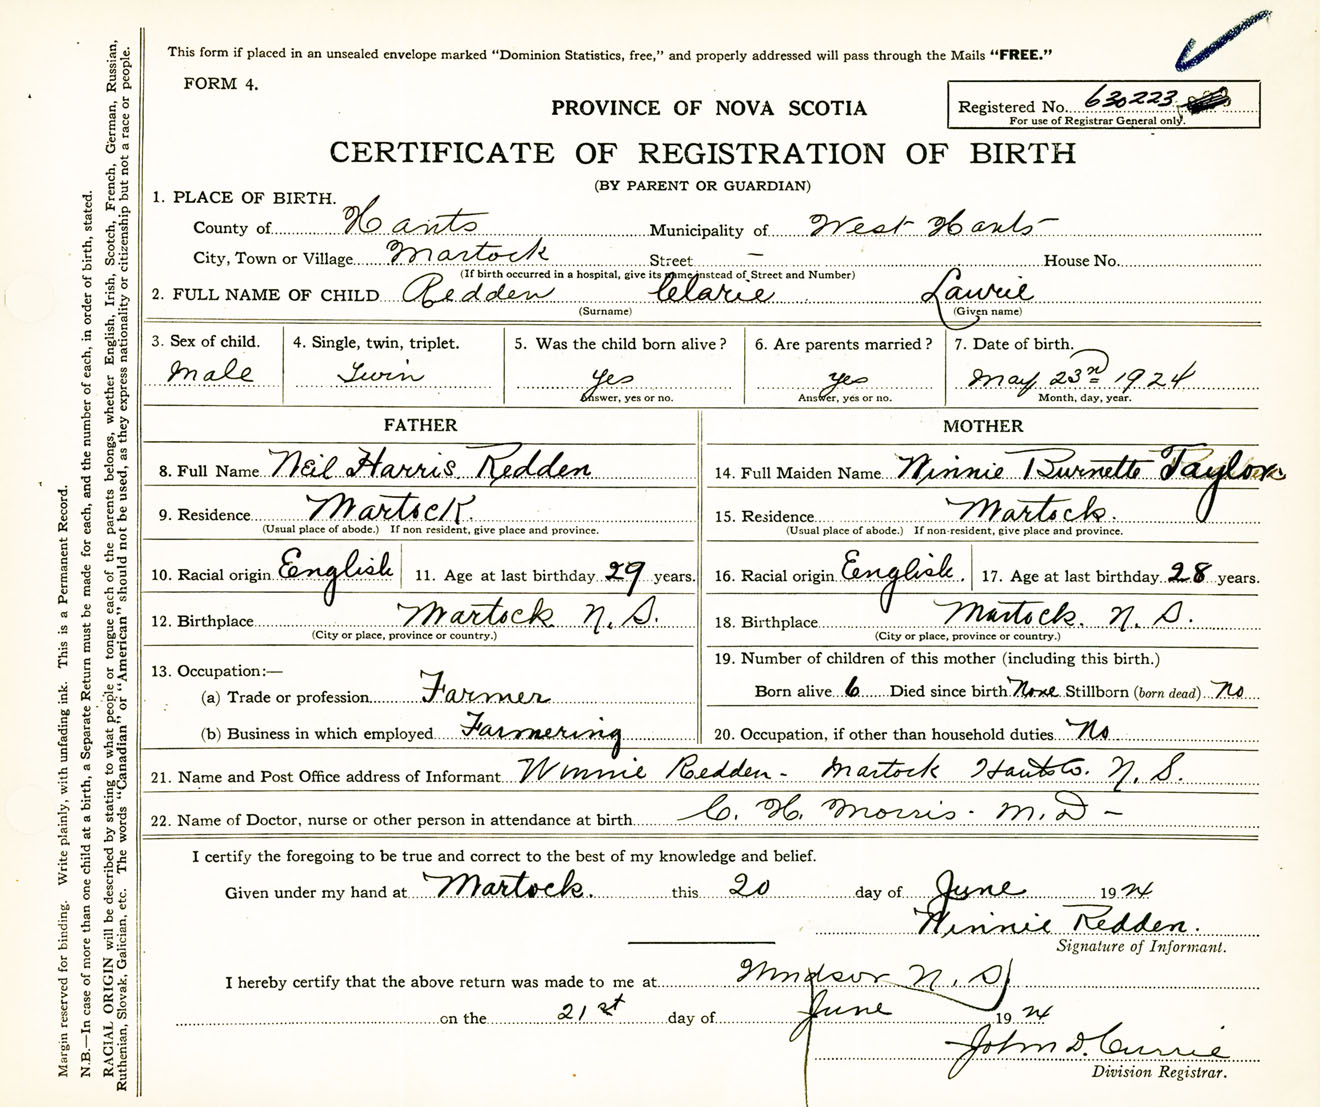 This form if placed in an unsealed envelope marked "Dominion Statistics, free," and properly addressed will pass through the Mails "FREE."
FORM 4.
PROVINCE OF NOVA SCOTIA
Registered No. 630223
For use of Registrar General only.
CERTIFICATE OF REGISTRATION OF BIRTH
(BY PARENT OR GUARDIAN)
1. PLACE OF BIRTH.
County of Hants Municipality of West Hants
City, Town or Village Martock Street — House No.
(If birth occurred in a hospital, give its name instead of Street and Number)
2. FULL NAME OF CHILD Redden Clarie Laurie
(Surname) (Given name)
3. Sex of child. 4. Single, twin, triplet. 5. Was the child born alive? 6. Are parents married? 7. Date of birth.
Male Twin Yes Yes May 23rd 1924
Answer, yes or no. Answer, yes or no. Month, day, year.
FATHER MOTHER
8. Full Name Neil Harris Redden 14. Full Maiden Name Winnie Burnette Taylor
9. Residence Martock. 15. Residence Martock.
(Usual place of abode.) If non resident, give place and province. (Usual place of abode.) If non-resident, give place and province.
10. Racial origin English 11. Age at last birthday 29 years. 16. Racial origin English. 17. Age at last birthday 28 years.
12. Birthplace Martock N. S. 18. Birthplace Martock. N. S.
(City or place, province or country.) (City or place, province or country.)
13. Occupation:— 19. Number of children of this mother (including this birth.)
(a) Trade or profession Farmer Born alive 6 Died since birth None Stillborn (born dead) No
(b) Business in which employed Farmering 20. Occupation, if other than household duties No
21. Name and Post Office address of Informant Winnie Redden - Martock Hants Co. N. S.
22. Name of Doctor, nurse or other person in attendance at birth C. H. Morris. M. D —
I certify the foregoing to be true and correct to the best of my knowledge and belief.
Given under my hand at Martock. this 20 day of June 1924
Winnie Redden.
Signature of Informant.
I hereby certify that the above return was made to me at Windsor N. S
on the 21st day of June 1924
John D. Currie
Division Registrar.
Margin reserved for binding. Write plainly, with unfading ink. This is a Permanent Record.
N.B.—In case of more than one child at a birth, a Separate Return must be made for each, and the number of each, in order of birth, stated.
RACIAL ORIGIN will be described by stating to what people or tongue each of the parents belongs, whether English, Irish, Scotch, French, German, Russian,
Ruthenian, Slovak, Galician, etc. The words "Canadian" or "American" should not be used, as they express nationality or citizenship but not a race or people.